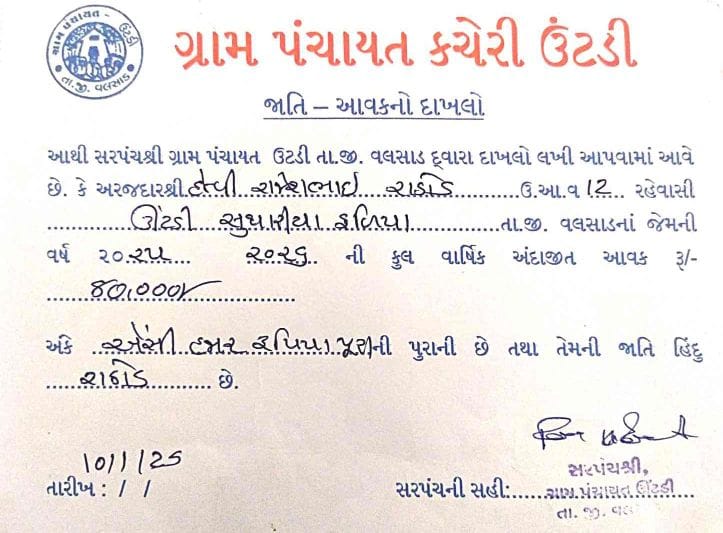 ગ્રામ પંચાયત - ઉંટડી
તા.જી. વલસાડ
ગ્રામ પંચાયત કચેરી ઉંટડી
જાતિ – આવકનો દાખલો
આથી સરપંચશ્રી ગ્રામ પંચાયત ઉટડી તા.જી. વલસાડ દ્વારા દાખલો લખી આપવામાં આવે
છે. કે અરજદારશ્રી રાજેશભાઇ રાઠોડ ઉ.આ.વ 12 રહેવાસી
ઊંટડી સુથારીયા ફળિયા તા.જી. વલસાડનાં જેમની
વર્ષ ૨૦૨૫ ૨૦૨૬ ની કુલ વાર્ષિક અંદાજીત આવક રૂ/-
80,000/
અંકે એંસી હજાર રૂપિયા પૂરાની પુરાની છે તથા તેમની જાતિ હિંદુ
રાઠોડ છે.
10/1/25
તારીખ : / /
સરપંચશ્રી,
સરપંચની સહી: ગ્રામ પંચાયત ઊંટડી
તા. જી. વલ